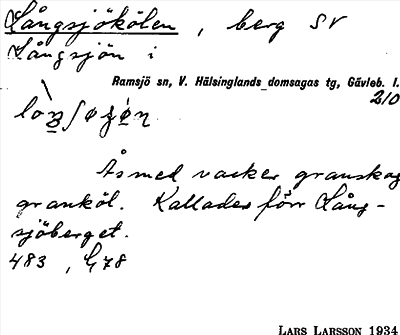 Långsjökölen, berg SV
Långsjön i
Ramsjö sn, V. Hälsinglands domsagas tg, Gävleb. l.
210
Ås med vacker granskog
granköl. Kallades förr Lång-
sjöberget.
483, G78
LARS LARSSON 1934